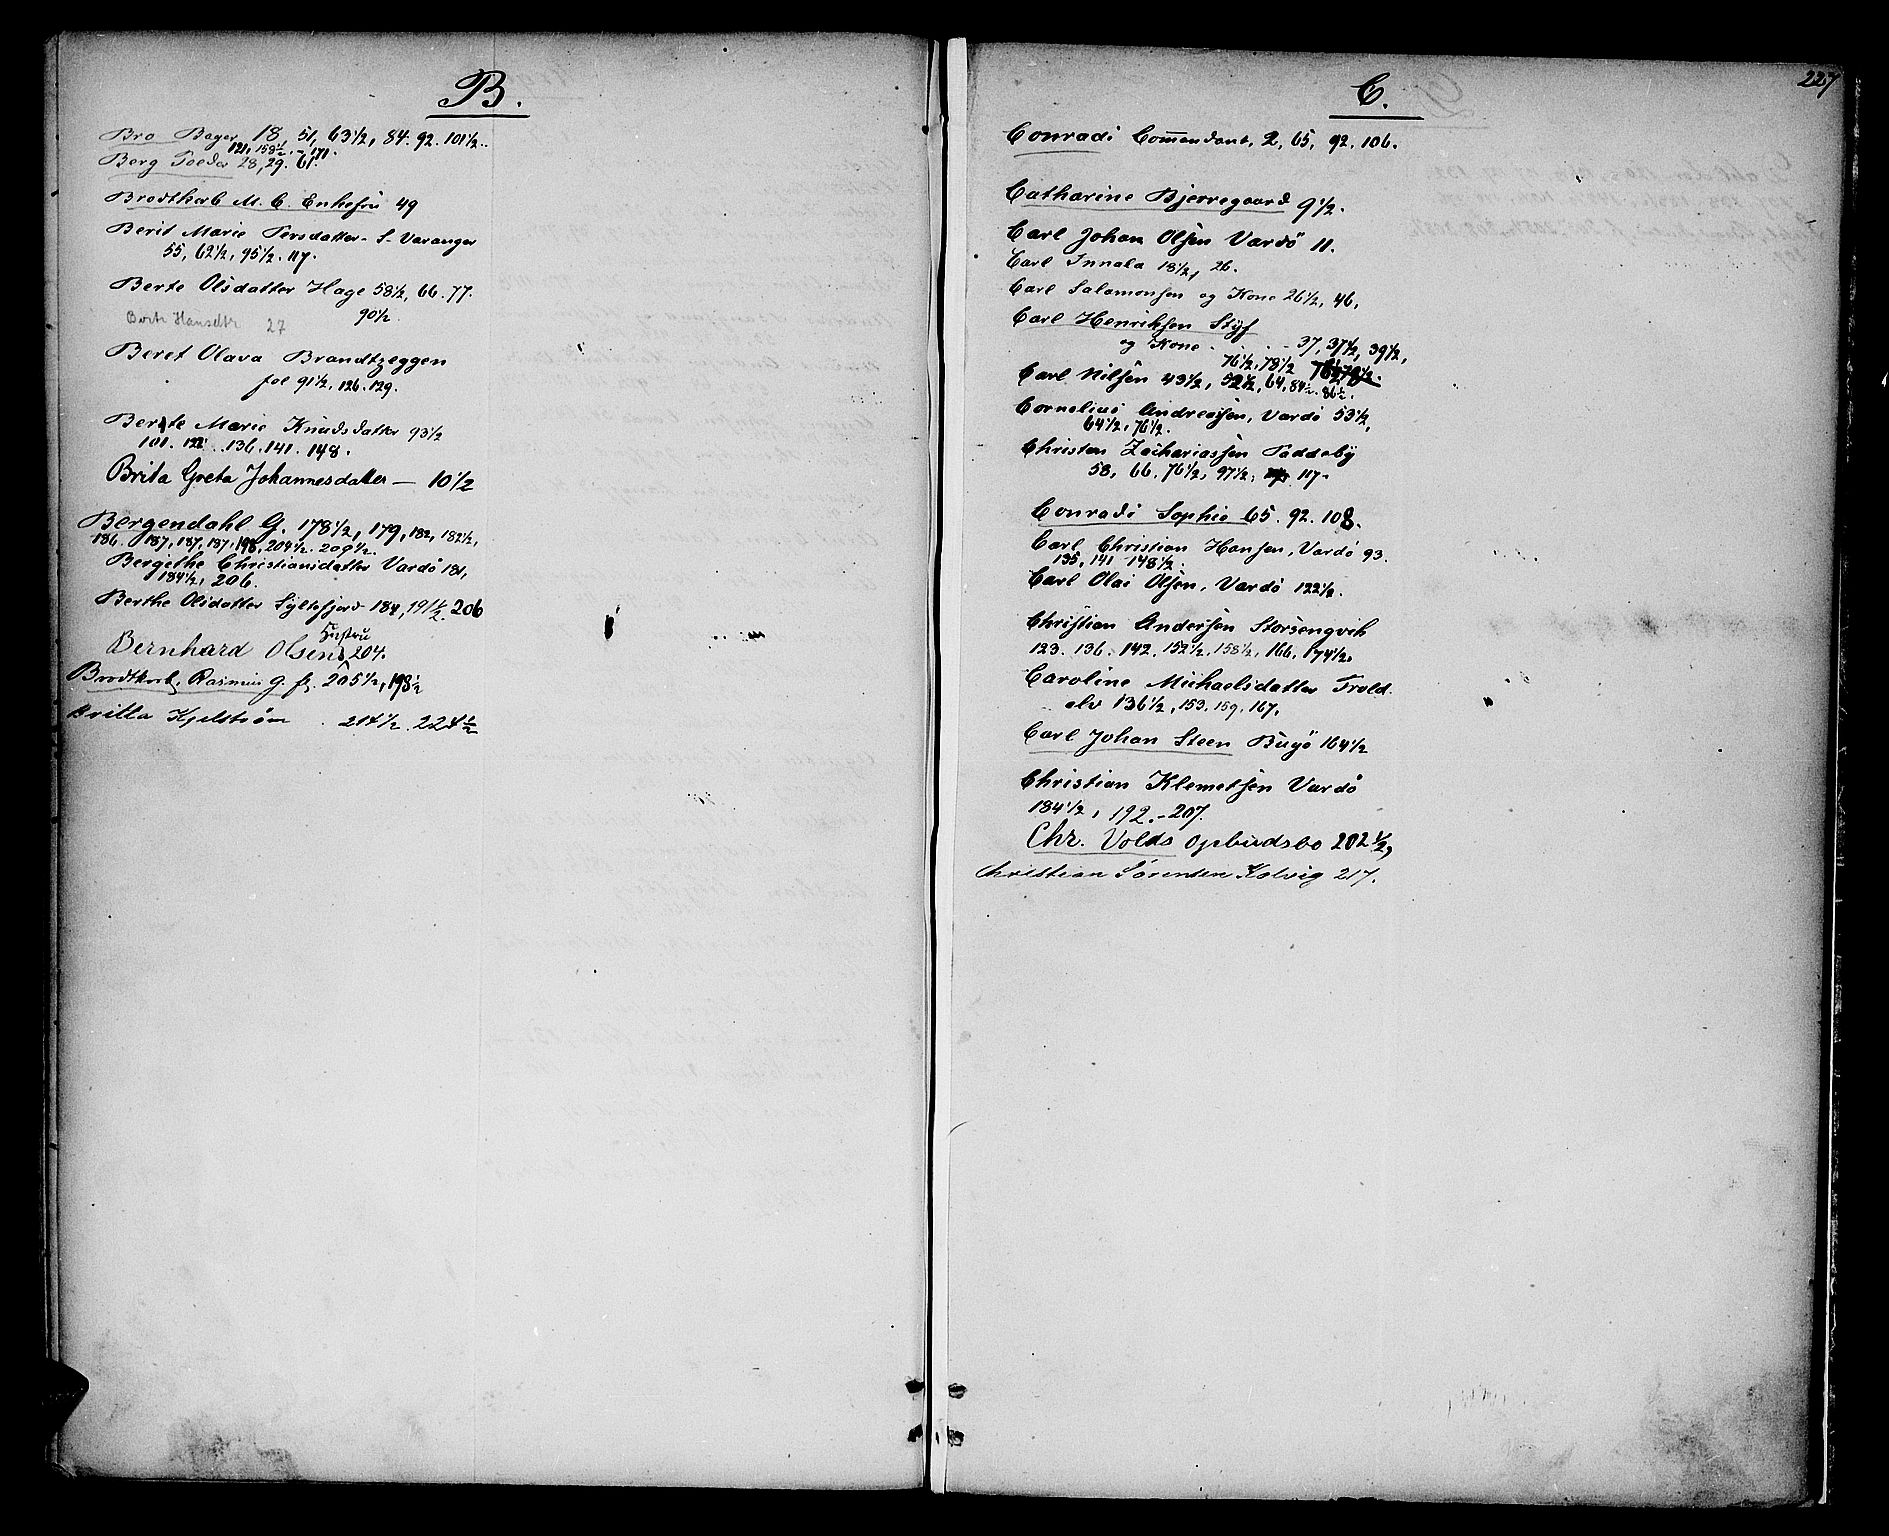 B.
Bro Bager 18, 51, 63½, 84. 92. 101½.
121, 158½ - 171.
Berg Foeder 28, 29. 61.
Brodtkorb M. C. Enkefru 49
Berit Marie Persdatter - S-Varanger
55, 62½, 95½. 117.
Berte Olsdatter Hage 58½, 66. 77.
90½
Berte Hansdtr 27
Beret Olava Brandtzeggen
fol 91½, 126. 129.
Berte Marie Knudsdatter 93½
101. 122. 136. 141. 148.
Brita Greta Johannesdatter — 10½
Bergendahl G. 178½, 179, 182, 182½,
186. 187, 187, 187, 198, 204½. 209½.
Bergithe Christiansdatter Vardö 181,
184½, 206.
Berthe Olsdatter Syltefjord 184, 191½. 206
Hustru
Bernhard Olsens 204.
Brodtkorb, Rasmus G. f. 205½, 198½
Britta Kjelström 214½. 224½
227
C.
Conradi Commendant, 2, 65, 92. 106.
Catharine Bjerregaard 9½.
Carl Johan Olsen Vardö 11.
Carl Innala 18½, 26.
Carl Salamonsen og Kone 26½, 46,
Carl Henriksen Styf
og Kone - 37, 37½, 39½,
76½, 78½ 76½ 78½.
Carl Nilsen 43½, 52½, 64, 84½. 86½.
Cornelius Andreassen, Vardö 53½,
64½, 76½.
Christen Zachariassen Paddeby
58, 66. 76½, 97½, 117.
Conradi Sophie 65. 92. 108.
Carl Christian Hansen, Vardö 93.
135, 141 148½.
Carl Olai Olsen, Vardö 122½.
Christian Andersen Storsengvik
123. 136. 142. 152½. 158½, 166. 174½.
Caroline Michaelsdatter Trold.
elv 136½, 153. 159. 167,
Carl Johan Steen Bugö 164½
Christian Klemetsen Vardö
184½, 192. - 207.
Chr. Volds Opbudsbo 202½,
Christian Sørensen Kolvig 217.